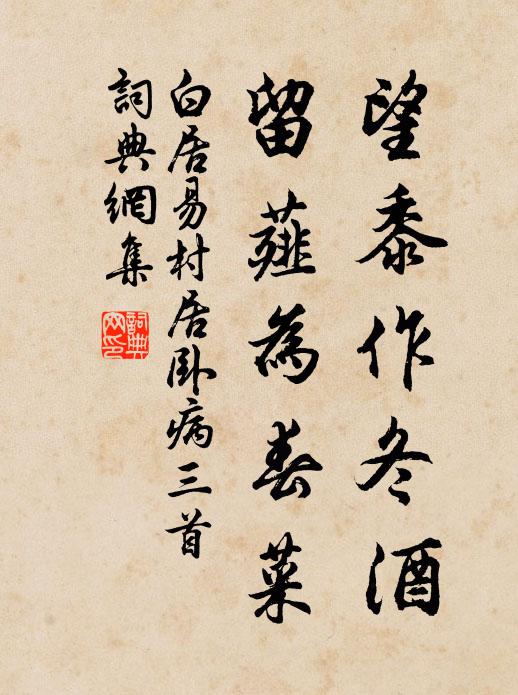 望黍作冬酒
留薤為春菜
白居易村居臥病三首
詞典網集
詞典網印